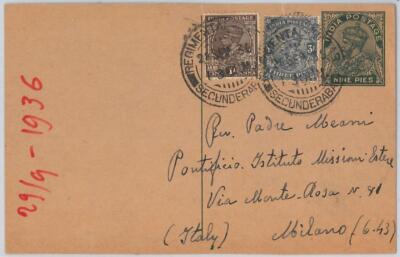 INDIA POSTAGE
INDIA POSTAGE
INDIA POSTAGE
NINE PIES
REGIMENTA
SECUNDERABA
SECUNDERABA
29/9 - 1936
Rev. Padre Meani
Pontificio Istituto Missioni Estere
Via Monte Rosa N. 81
(Italy) Milano (6.43)